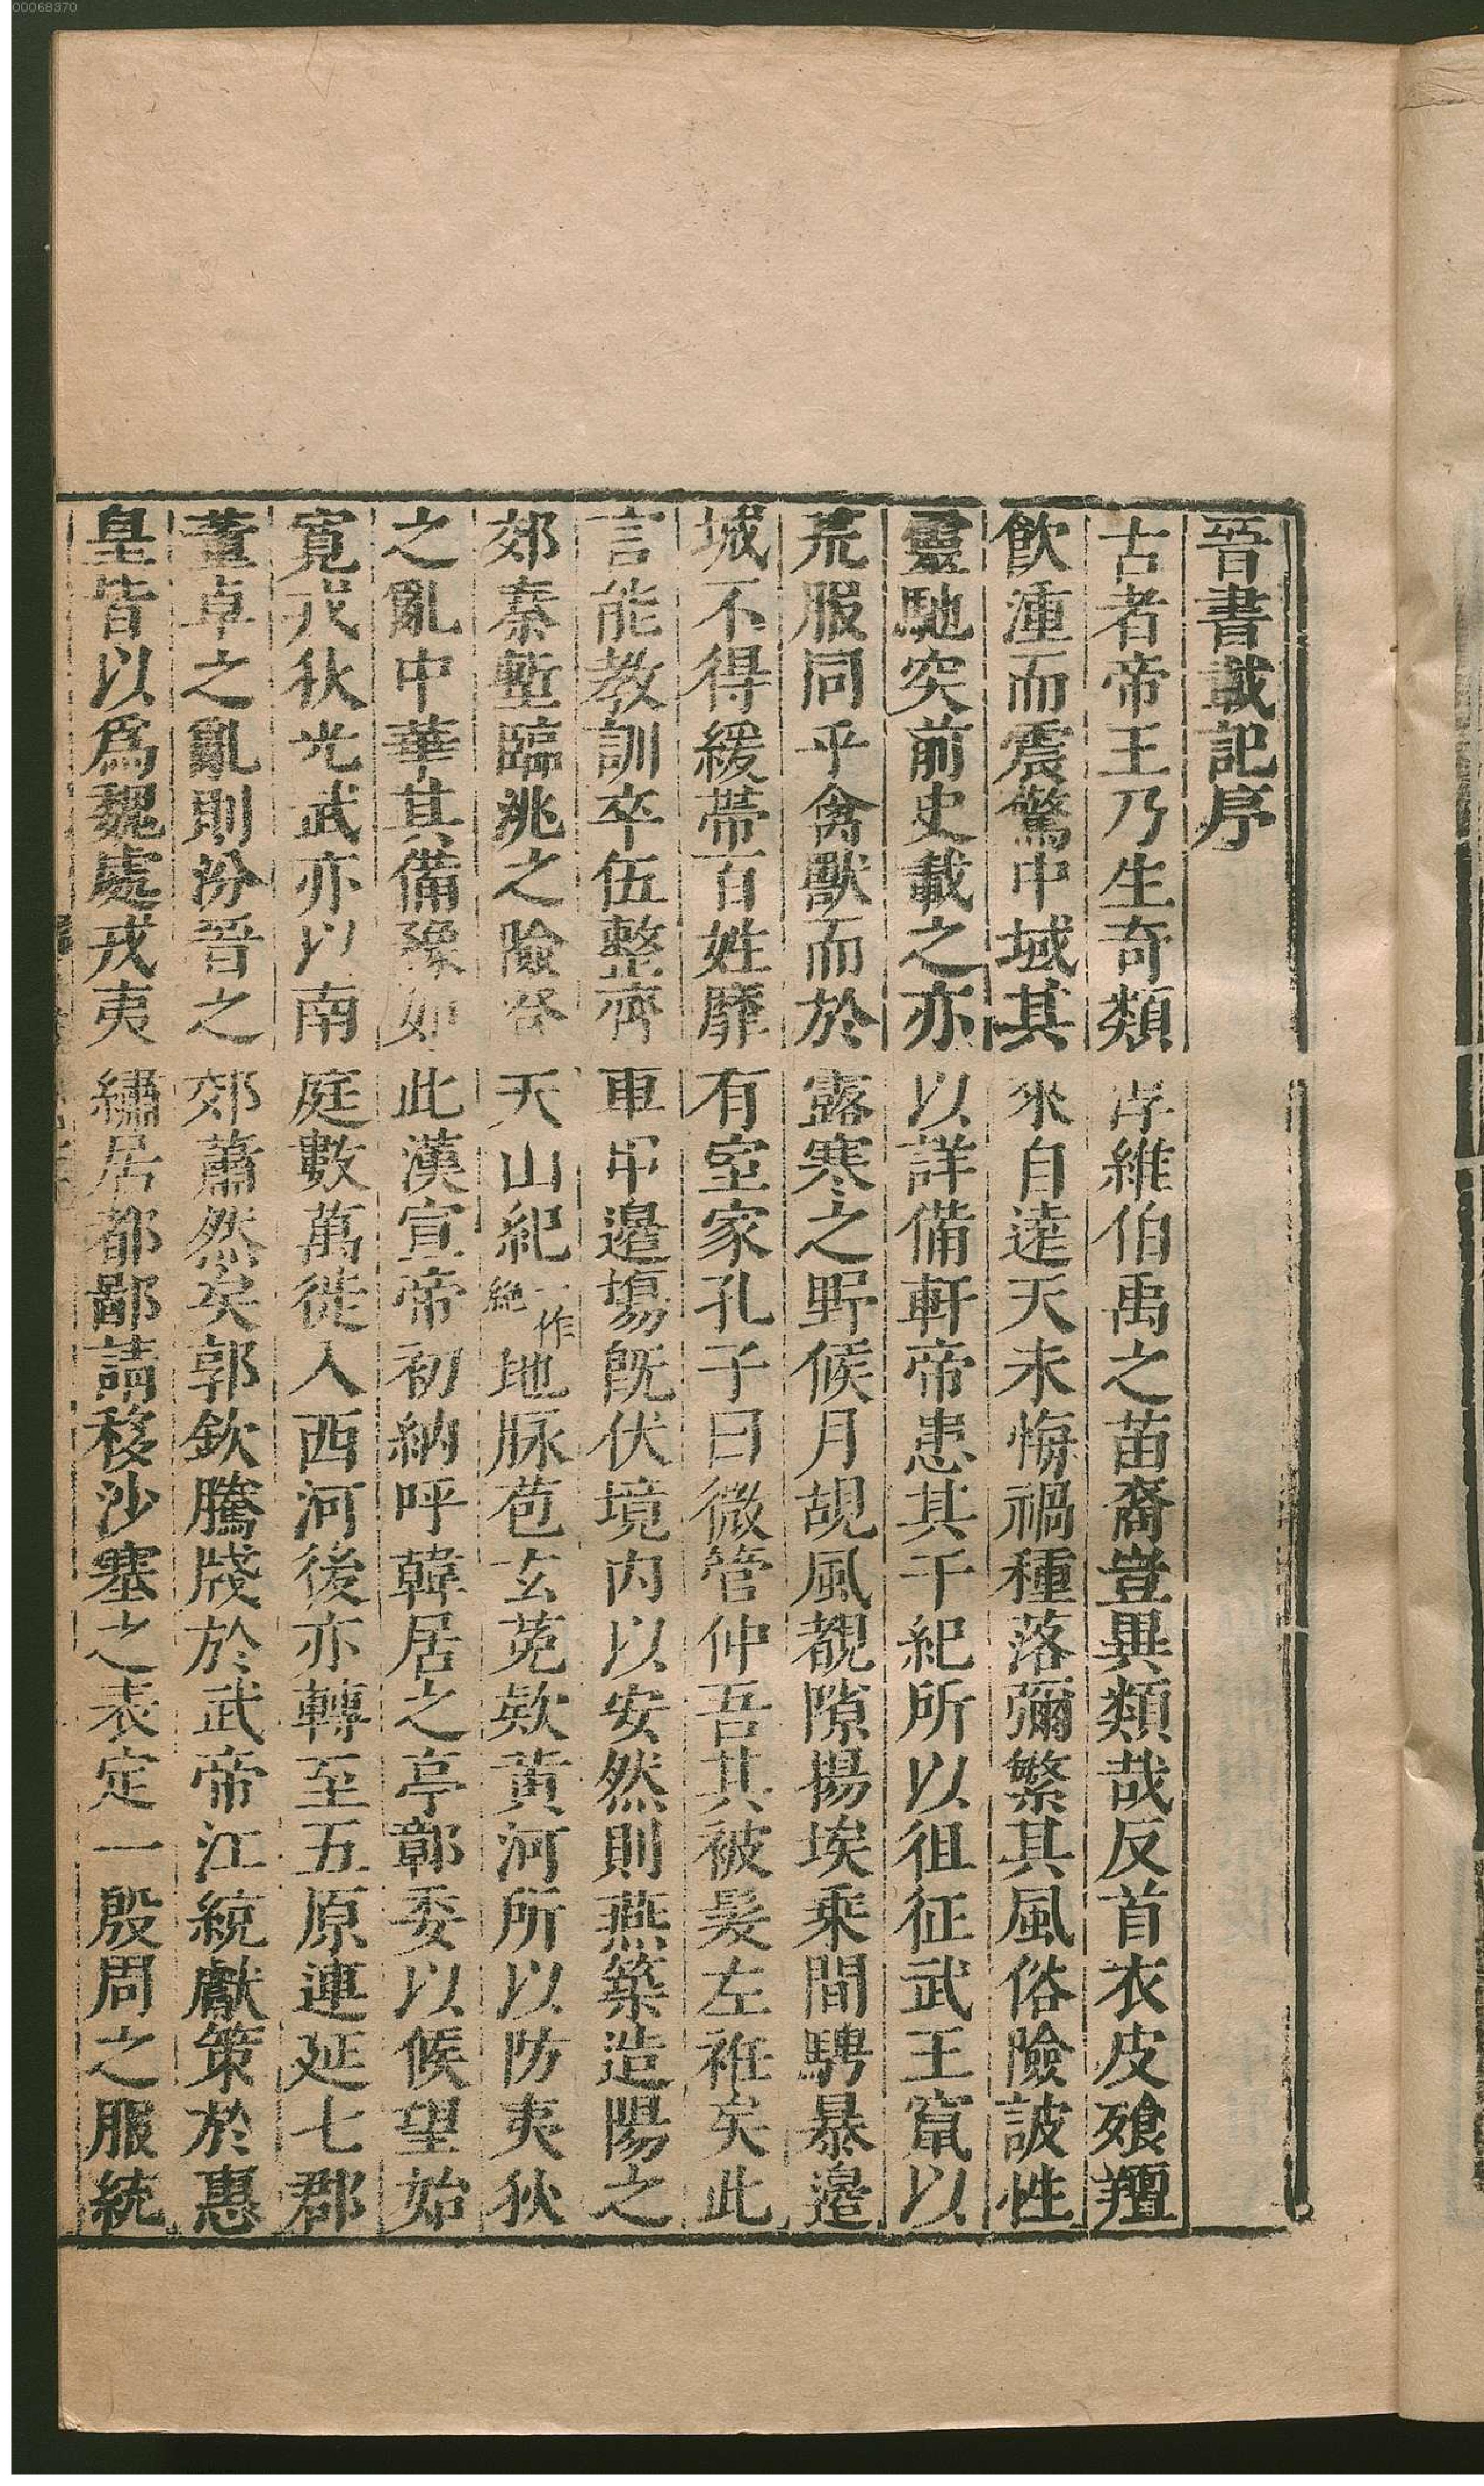 00068370
晉書載記序
古者帝王乃生奇類淳維伯禹之苗裔豈異類哉反首衣皮飱羶
飲湩而震驚中域其來自逺天未悔禍種落彌繁其風俗險詖性
靈馳突前史載之亦以詳備軒帝患其干紀所以徂征武王竄以
荒服同乎禽獸而於露寒之野候月覘風覩隙揚埃乘間騁暴邉
城不得緩帶百姓靡有室家孔子曰微管仲吾其被髮左袵矣此
言能教訓卒伍整齊車甲邉塲旣伏境内以安然則燕築造陽之
郊秦塹臨洮之險登天山紀一作絶地脉苞玄菟欵黃河所以防夷狄
之亂中華其備豫如此漢宣帝初納呼韓居之亭鄣委以候望始
寛戎狄光武亦以南庭數萬徙入西河後亦轉至五原連延七郡
董卓之亂則汾晉之郊蕭然矣郭欽騰牋於武帝江統獻策於惠
皇皆以爲魏處戎夷繡居都鄙請移沙塞之表定一殷周之服統